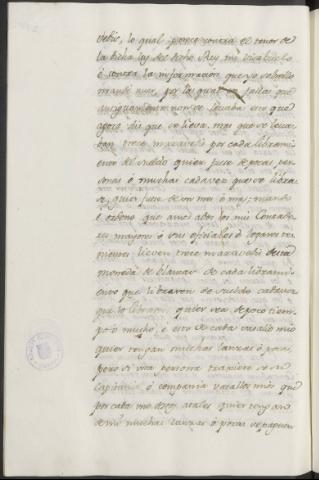 dello, lo qual porque contra el tenor de
la dicha ley del dicho Rey mi visabuelo
é contra la informacion que yo sobrello
mandé aver, por la qual se falla que
antiguamente non se levaba eso que
agora diz que se lieva, mas que se leva-
ban trece maravedis por cada libramin-
ento de sueldo quier fuese de pocas per-
sonas ó muchas cada vez que se libra-
se, quier fuese de un mes ó mas; mando
é ordeno que aqui adelante los mis Contado-
res mayores é sus oficiales é lugares te-
nientes lieven trece maravedis desta
moneda de blancas de cada librami-
ento que libraren de sueldo, cada vez
que lo libraren, quier sea de poco tiem-
po ó mucho, é esto de cada vasallo mio
quier tengan muchas lanzas ó pocas,
pero si una persona traxiere so su
capitania ó compania vasallos mios que
por cada uno destos atales quier tengan
de mi muchas lanzas ó pocas se paguen